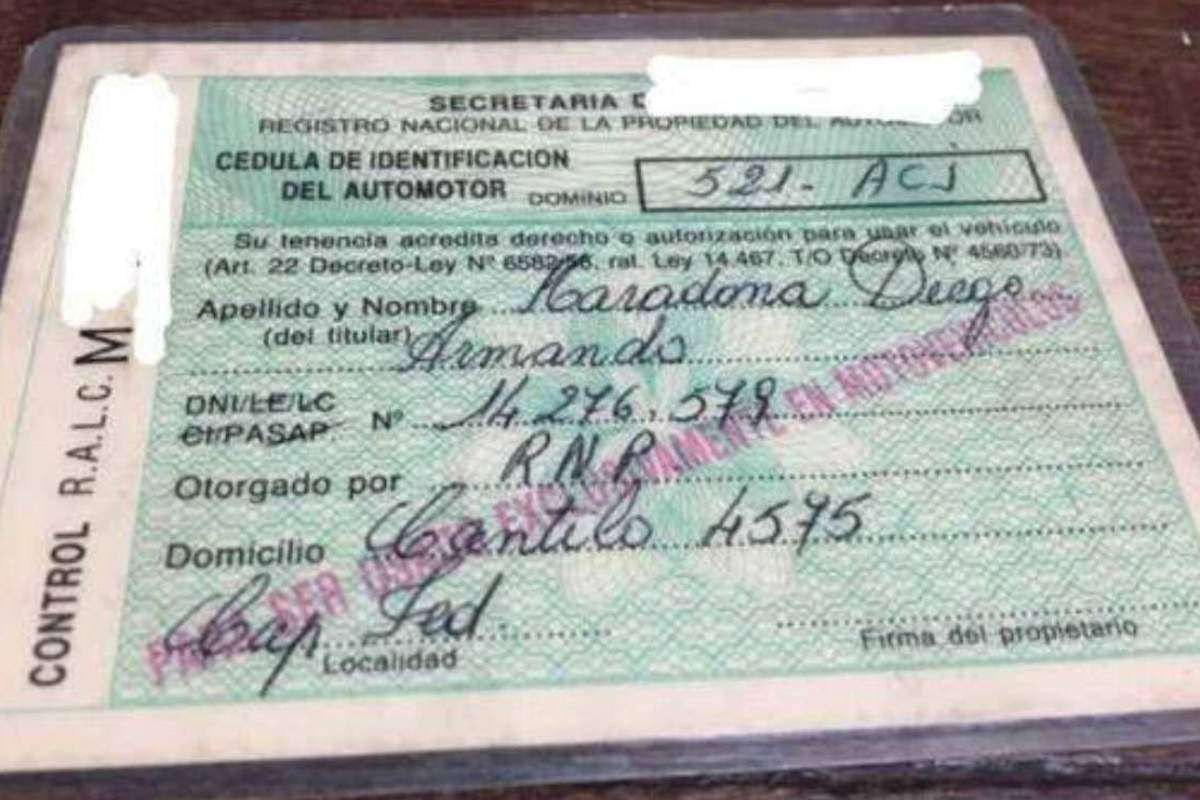 SECRETARIA D
REGISTRO NACIONAL DE LA PROPIEDAD DEL AUTOMOTOR
CEDULA DE IDENTIFICACION
DEL AUTOMOTOR DOMINIO 521- ACJ
Su tenencia acredita derecho o autorización para usar el vehículo
(Art. 22 Decreto-Ley Nº 6582/58, rat. Ley 14.467, T/O Decreto Nº 4560/73).
Apellido y Nombre Maradona Diego
(del titular) Armando
DNI/LE/LC
CI/PASAP. Nº 14.276.579
Otorgado por RNP
Domicilio Cantilo 4575
Cap Fed.
Localidad
Firma del propietario
PARA SER USADO EXCLUSIVAMENTE EN MOTOVEHICULOS
CONTROL R.A.L.C. M